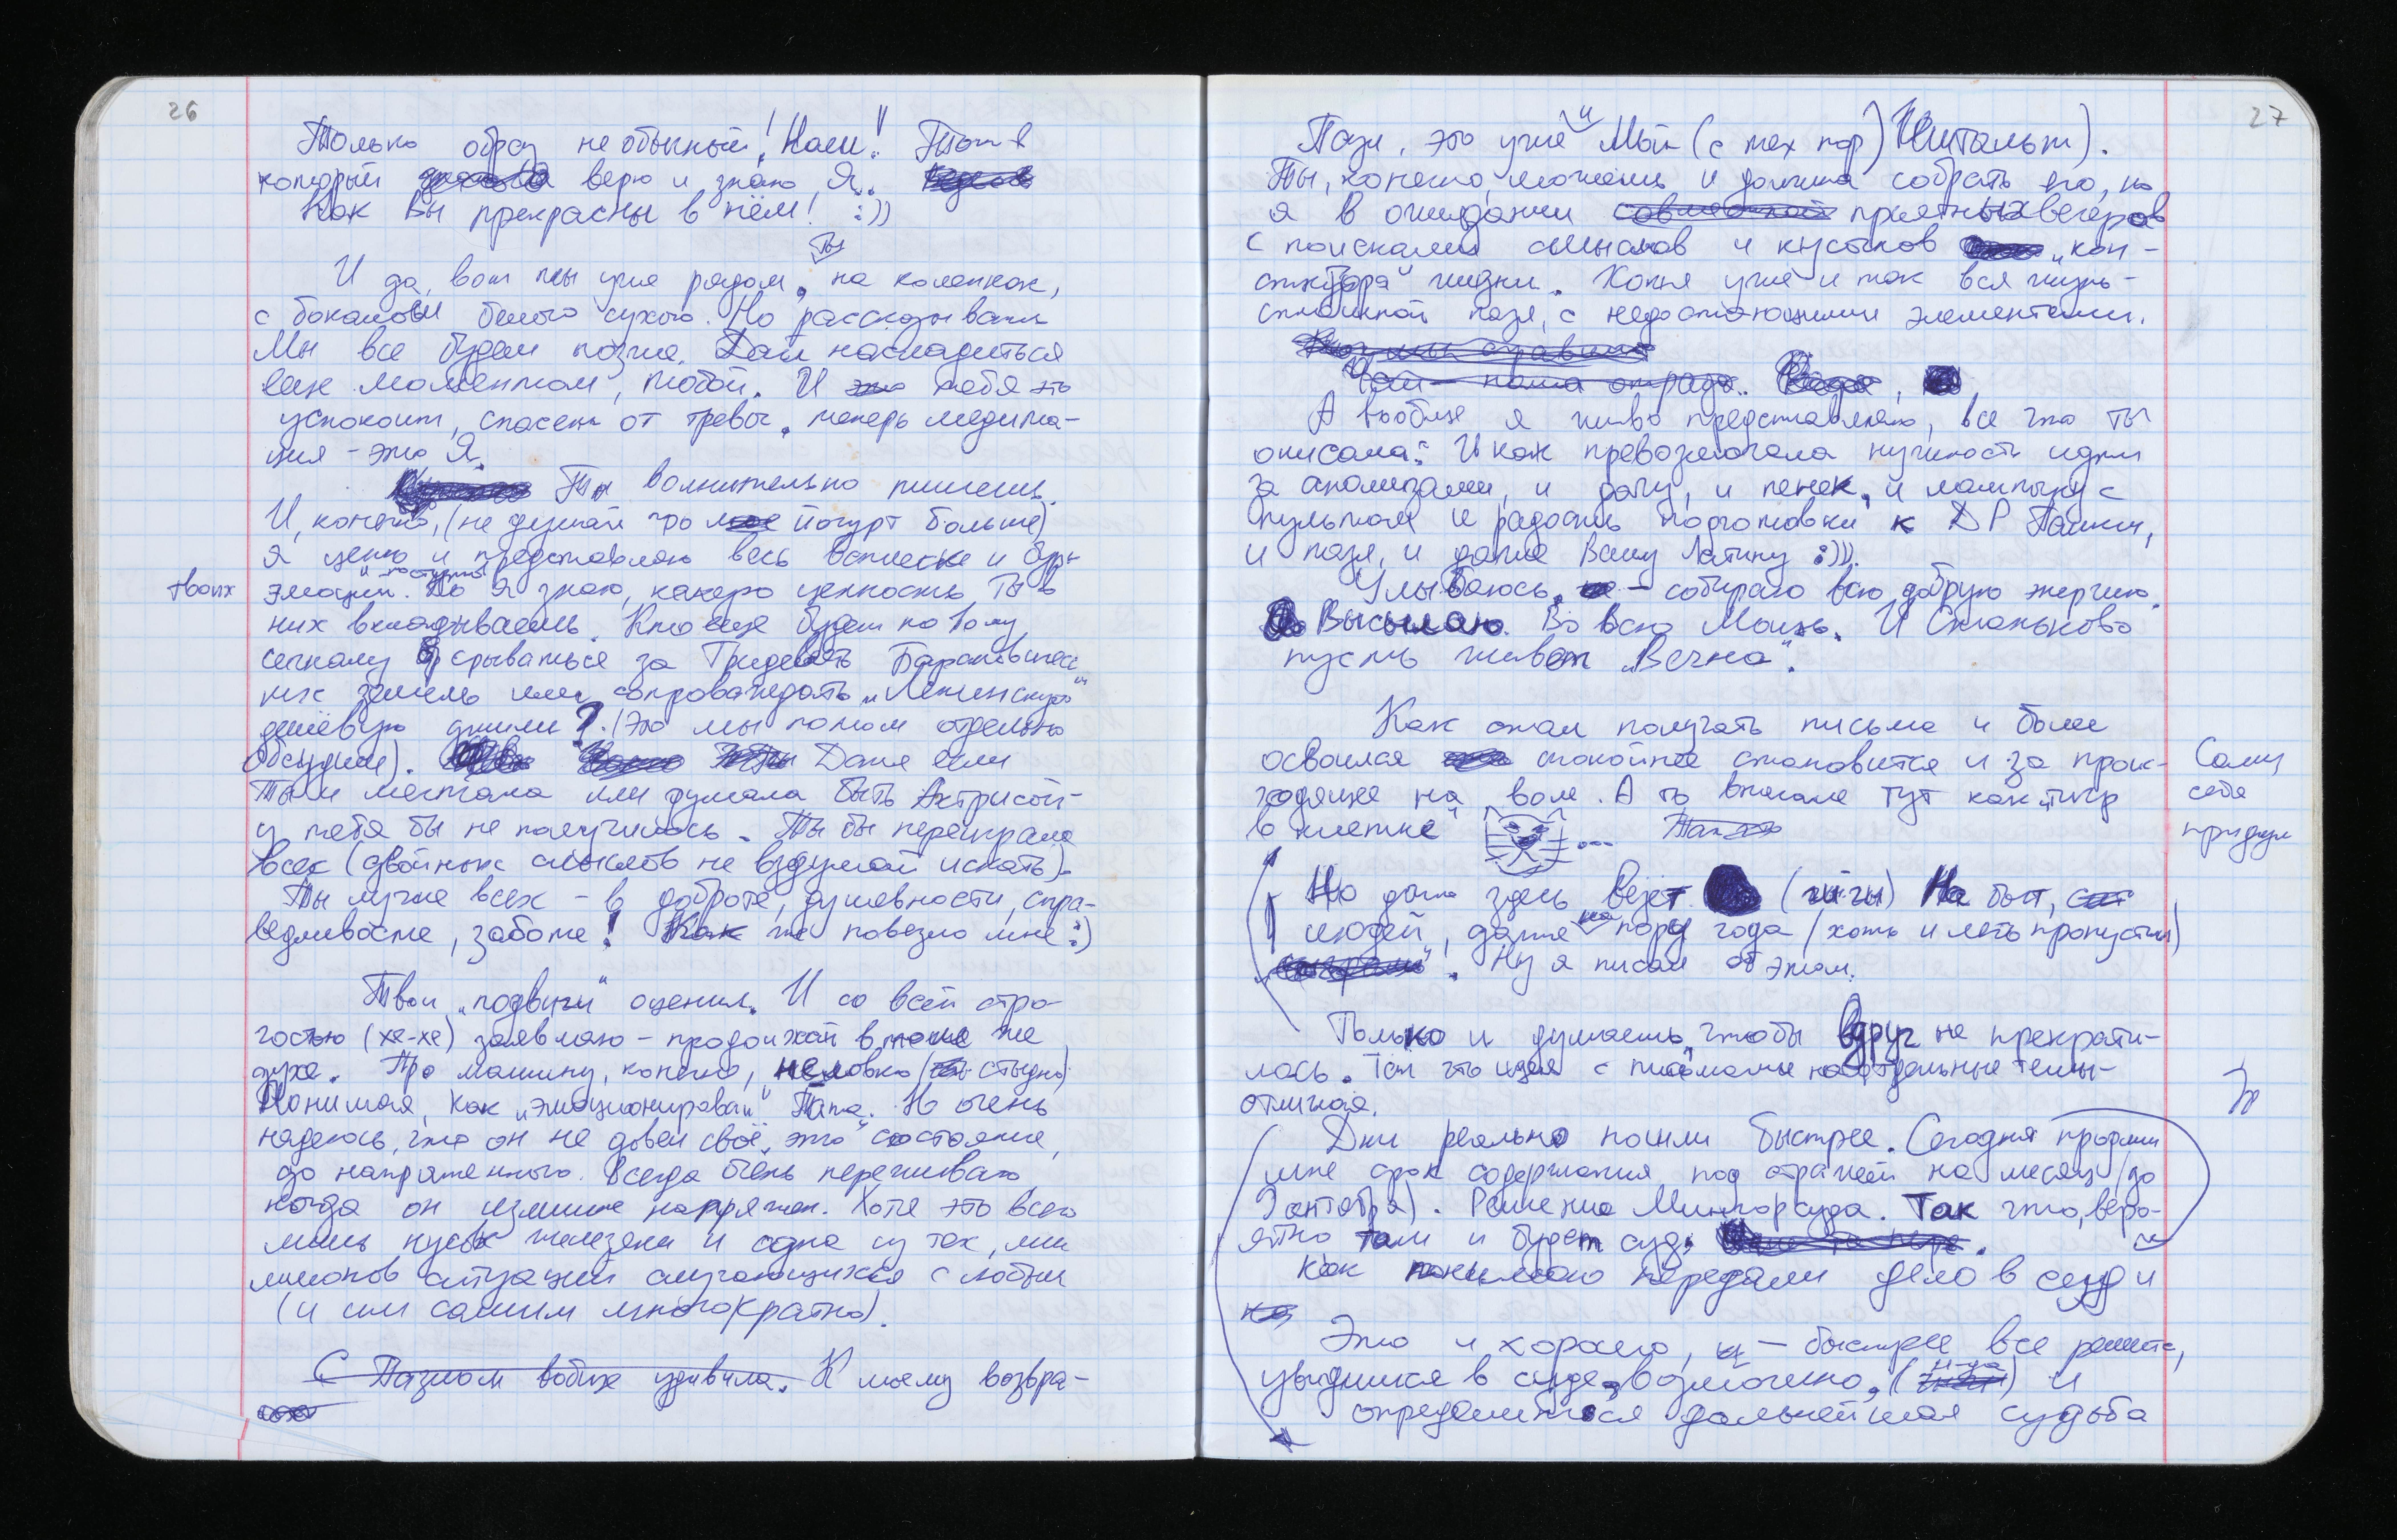 26
Только образ не обычный! Наш!! Тот в
который верю и знаю Я.
Как Вы прекрасны в нём! :))
Ты
И да, вот ты уже рядом, на коленках,
с бокалом белого сухого. Но рассказывать
Мы все будем позже. Дай насладиться
моментом, тобой. И тебя это
успокоит, спасет от тревог, теперь медита-
ция - это Я.
Ты волнительно пишешь.
И, конечно, (не думай про йогурт больше)
я ценю и представляю весь всплеск и
твоих эмоций. Я знаю, какую ценность Ты в
них вкладываешь. Кто еще будет по 1ому
сигналу срываться за Тридевять
земель или сопровождать „Ленинскую"
? (Это мы потом отдельно
обсудим). Даже если
Ты и мечтала или думала быть Актрисой -
у тебя бы не получилось. Ты бы переиграла
всех (двойных смыслов не вздумай искать).
Ты лучше всех - в доброте, душевности, спра-
ведливости, заботе! Как же повезло мне :)
Твои „подвиги" оценил. И со всей стро-
гостью (хе-хе) заявляю - продолжай в том же
духе. Про машину, конечно, неловко (стыдно)
Понимая, как „эмоционировал" Папа. Но очень
надеюсь, что он не довел своё „это" состояние
до напряженного. Всегда очень переживаю
когда он излишне напряжен. Хотя это всего
лишь кусок железяки и одна из тех, мил
лионов ситуаций случающихся с людьми
(и им самим многократно).
С Пазлом вобще удивила. К моему возвра-
27
Пазл, это уже и Мой (с тех пор) Гештальт).
Ты, конечно, можешь и должна собрать его, но
я в ожидании приятных вечеров
с поисками смыслов и кусочков „кон-
структора" жизни. Хотя уже и так вся жизнь -
сплошной пазл, с недостающими элементами.
Чай - наша отрада..
А вообще я живо представляю, все что ты
описала: И как превозмогала нужность идти
за анализами, и дачу, и пенек, и лампочку с
пультом и радость подготовки к ДР Пашки,
и пазл, и даже Вашу Латину :))).
Улыбаюсь, - собираю всю добрую энергию.
Высылаю. Во всю Мощь. И Стольково
пусть живет „Вечно".
Как стал получать письма и более
освоился спокойнее становится и за проис-
ходящее на воле. А то вначале тут как „тигр
в клетке" ...
Сам
себе
придумал
Но даже здесь Везет (чи-чи) На быт,
людей, даже на пору года (хоть и лето пропустил)
. Ну я писал об этом.
Только и думаешь, чтобы вдруг не прекрати-
лось. Так что идея с письмами на отдельные темы -
отличная.
Дни реально пошли быстрее. Сегодня продлили
мне срок содержания под стражей на месяц (до
октября). Решение Мингорсуда. Так что, веро-
ятно там и будет суд.
Как понимаю передали дело в суд и
Это и хорошо, - быстрее все решится,
увидимся в суде, возможно, и
определится дальнейшая судьба